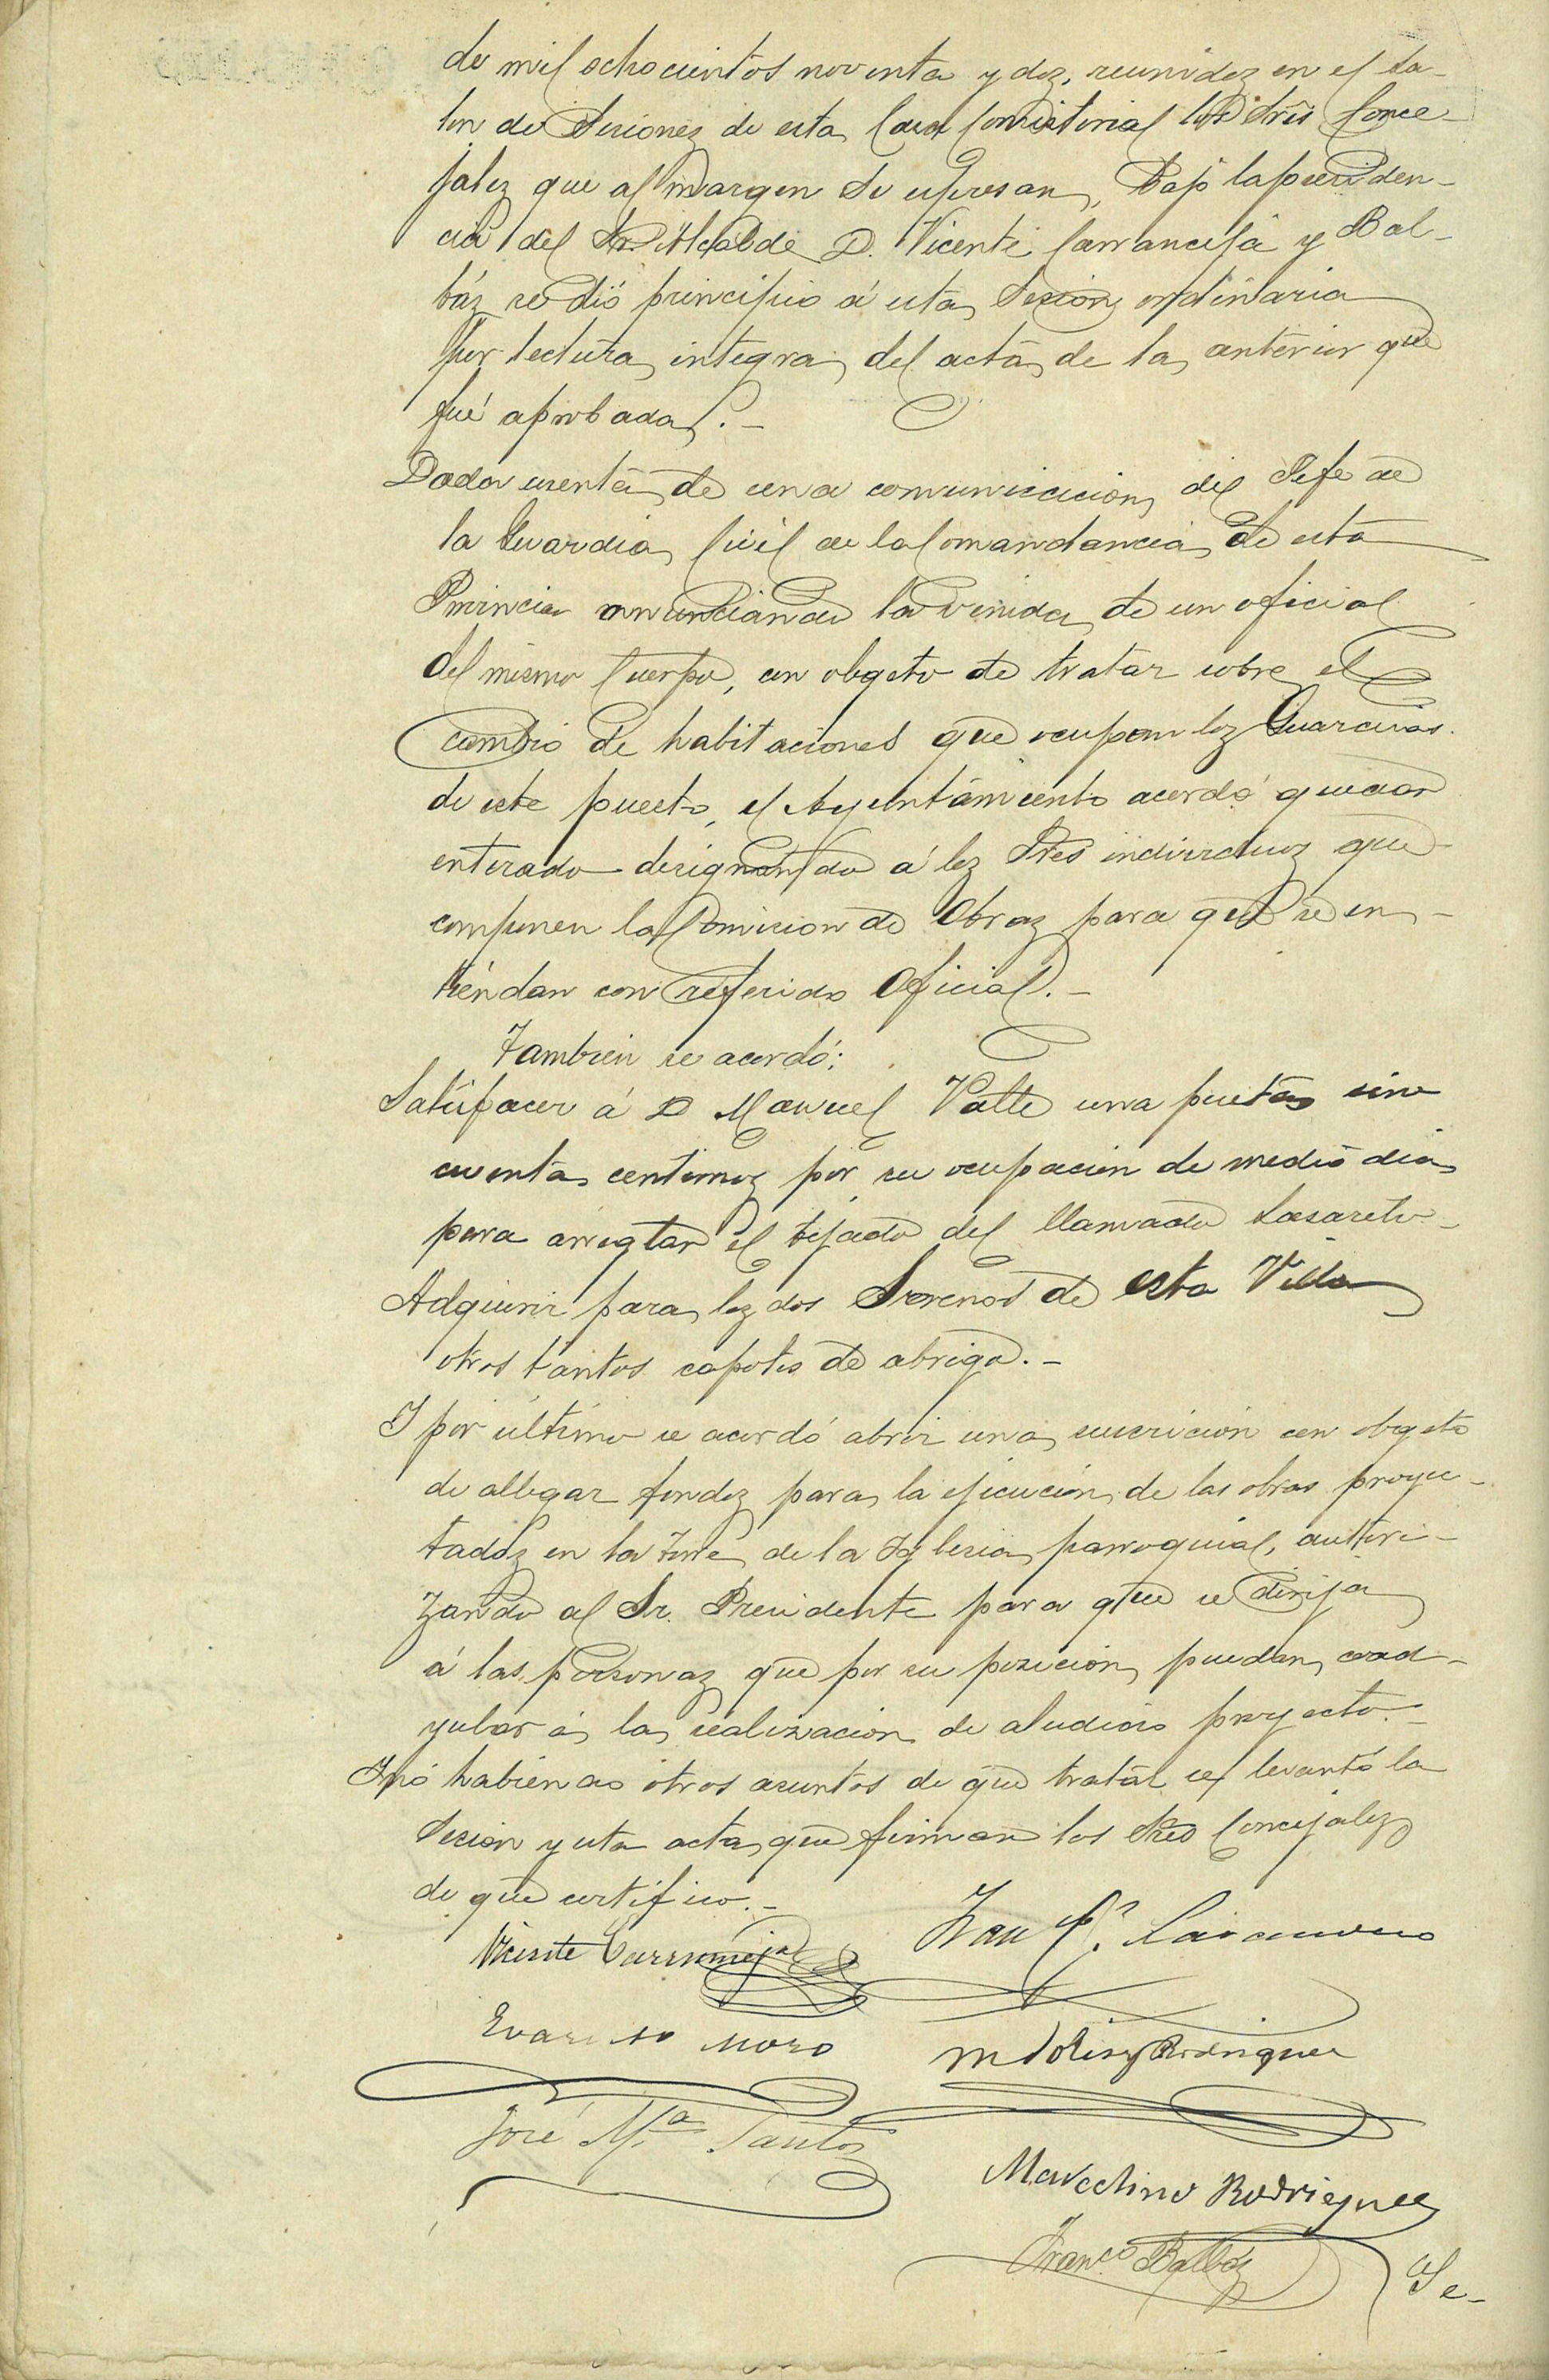 de mil ochocientos noventa y dos, reunidos en el Sa-
lon de Sesiones de esta Casa Consistorial los Sres Conce-
jales que al margen se espresan, bajo la presiden-
cia del Sr. Alcalde D. Vicente Carranceja y Bal-
bás se dió principio á esta Sesion ordinaria
por lectura integra del acta de la anterior que
fué aprobada.-
Dada cuenta de una comunicacion del Jefe de
la Guardia Civil de la Comandancia de esta
Provincia anunciando la venida de un oficial
del mismo Cuerpo, con obgeto de tratar sobre el
cambio de habitaciones que ocupan los Guardias
de este puesto, el Ayuntamiento acordó quedar
enterado designando á los Sres individuos que
componen la Comision de Obras para que se en-
tiendan con referido Oficial.-
Tambien se acordó:
Satisfacer á D Manuel Valle una peseta cin
cuenta centimos por su ocupacion de medio dia
para arreglar el tejado del llamado Lasareto-
Adquirir para los dos Serenos de esta Villa
otros tantos capotes de abrigo.-
Y por último se acordó abrir una suscricion con obgeto
de allegar fondos para la ejecucion de las obras proyec-
tadas en la torre de la Iglesia parroquial, autori-
zando al Sr. Presidente para que se dirija
á las personas que por su posicion puedan coad-
yubar á la realizacion de aludido proyecto.-
Y nó habiendo otros asuntos de que tratar se levantó la
Sesion y esta acta que firman los Sres Concejales
de que certifico.-
Vicente Carranceja
Evaristo Moro
Rodriguez
José Mª Santos
Marcelino Rodriguez
Francº Balbás
Se-